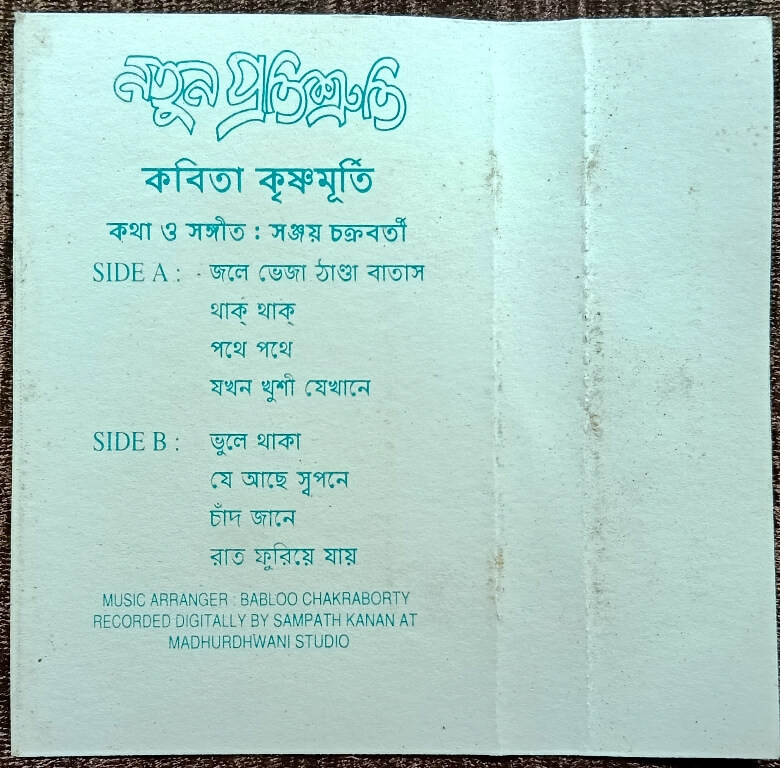 নতুন প্রতিশ্রুতি
কবিতা কৃষ্ণমূর্তি
কথা ও সঙ্গীত : সঞ্জয় চক্রবর্তী
SIDE A : জলে ভেজা ঠাণ্ডা বাতাস
থাক্ থাক্
পথে পথে
যখন খুশী যেখানে
SIDE B : ভুলে থাকা
যে আছে স্বপনে
চাঁদ জানে
রাত ফুরিয়ে যায়
MUSIC ARRANGER : BABLOO CHAKRABORTY
RECORDED DIGITALLY BY SAMPATH KANAN AT
MADHURDHWANI STUDIO